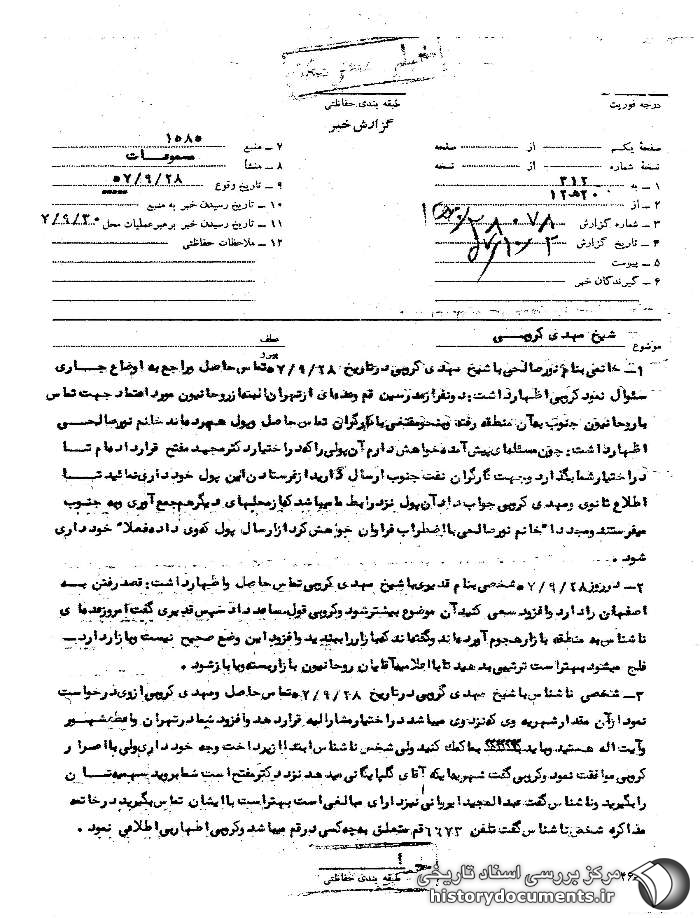 درجه فوریت
طبقه بندی حفاظتی
گزارش خبر
صفحهٔ یکم از صفحه
نسخهٔ شماره از نسخه
۱ــ به ۳۱۲
۲ــ از ۲۰ ه‍ ۱۲
۳ــ شماره گزارش
۴ــ تاریخ گزارش
۵ــ پیوست
۶ــ گیرندگان خبر
۷ــ منبع ۱۵۸۵
۸ــ منشأ مسموعات
۹ــ تاریخ وقوع ۵۷/۹/۲۸
۱۰ــ تاریخ رسیدن خبر به منبع
۱۱ــ تاریخ رسیدن خبر برهبر عملیات محل ۷/۹/۳۰
۱۲ــ ملاحظات حفاظتی
موضوع شیخ مهدی کروبی
۱ــ خانمی بنام نورصالحی با شیخ مهدی کروبی در تاریخ ۷/۹/۲۸ تماس حاصل و راجع به اوضاع جاری
سئوال نمود کروبی اظهار داشت: دو نفر از مدرسین قم و عده‌ای از تهران از روحانیون مورد اعتماد جهت تماس
با روحانیون جنوب به آن منطقه رفته و بنحو مقتضی با کارگران تماس حاصل و پول هم برده‌اند خانم نورصالحی
اظهار داشت: چون مسئله‌ای پیش آمده خواهش دارم آن پولی را که در اختیار دکتر محمد مفتح قرار داده‌ام تا
در اختیار شما بگذارد و جهت کارگران نفت جنوب ارسال دارید از فرستادن این پول خود داری نمائید تا
اطلاع ثانوی و مهدی کروبی جواب داد آن پول نزد رابط ما میباشد که از محلهای دیگر هم جمع آوری و به جنوب
میفرستند و مجدداً خانم نورصالحی با اضطراب فراوان خواهش کرد از ارسال پول که وی داده فعلاً خود داری
شود.
۲ــ در روز ۷/۹/۲۸ شخصی بنام قدیری با شیخ مهدی کروبی تماس حاصل و اظهار داشت: قصد رفتن به
اصفهان را دارد و افزود سعی کنید آن موضوع بیشتر شود و کروبی قول مساعد داد سپس قدیری گفت امروز عده‌ای
ناشناس به منطقه بازار هجوم آورده‌اند و گفته‌اند که بازار را ببندید و افزود این وضع صحیح نیست و بازار دارد
فلج میشود بهتر است ترتیبی بدهید تا با اعلامیه آقایان روحانیون بازار بسته و یا باز شود.
۳ــ شخصی ناشناس با شیخ مهدی کروبی در تاریخ ۷/۹/۲۸ تماس حاصل و مهدی کروبی از وی درخواست
نمود از آن مقدار شهریه وی که نزد وی میباشد در اختیار مشارالیه قرار دهد و افزود شما در تهران واعظ مشهور
و آیت اله هستید و باید بما کمک کنید ولی شخص ناشناس ابتدا از پرداخت وجه خود داری ولی با اصرار
کروبی موافقت نمود و کروبی گفت شهریه‌ایکه آقای گلپایگانی میدهد نزد دکتر مفتح است شما بروید سهمیه‌تان
را بگیرید و ناشناس گفت عبدالمجید ایروانی نیز دارای مبالغی است بهتر است با ایشان تماس بگیرید در خاتمه
مذاکره شخص ناشناس گفت تلفن ۶۶۷۳ قم متعلق به چه کسی در قم میباشد و کروبی اظهار بی اطلاعی نمود.
طبقه بندی حفاظتی
مرکز بررسی اسناد تاریخی
historydocuments.ir